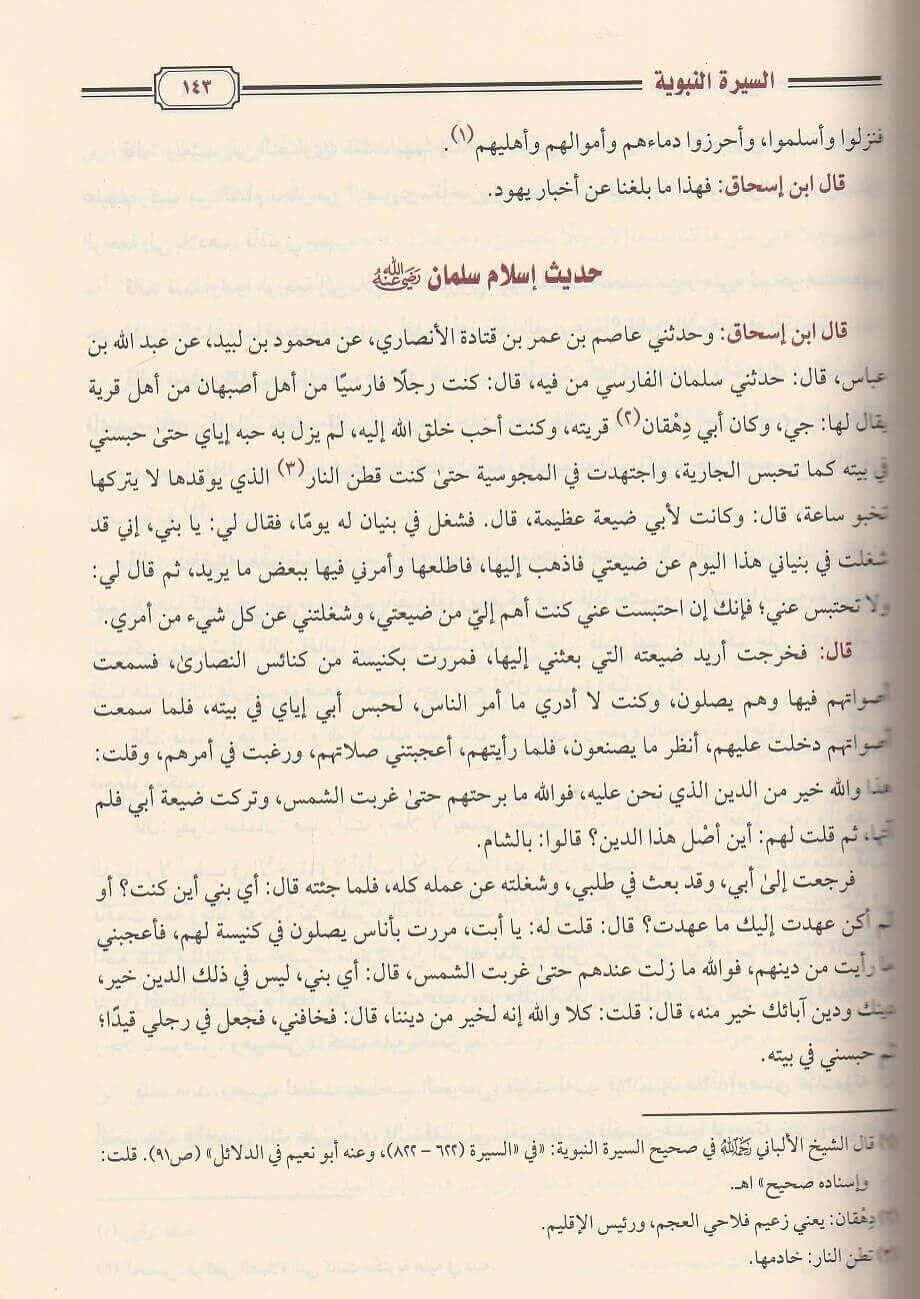 السيرة النبوية ١٤٣
فنزلوا وأسلموا، وأحرزوا دماءهم وأموالهم وأهليهم(١).
قال ابن إسحاق: فهذا ما بلغنا عن أخبار يهود.
حديث إسلام سلمان رضي الله عنه
قال ابن إسحاق: وحدثني عاصم بن عمر بن قتادة الأنصاري، عن محمود بن لبيد، عن عبد الله بن
عباس، قال: حدثني سلمان الفارسي من فيه، قال: كنت رجلًا فارسيًا من أهل أصبهان من أهل قرية
يقال لها: جي، وكان أبي دِهْقان(٢) قريته، وكنت أحب خلق الله إليه، لم يزل به حبه إياي حتىٰ حبسني
في بيته كما تحبس الجارية، واجتهدت في المجوسية حتىٰ كنت قطن النار(٣) الذي يوقدها لا يتركها
تخبو ساعة، قال: وكانت لأبي ضيعة عظيمة، قال. فشغل في بنيان له يومًا، فقال لي: يا بني، إني قد
شغلت في بنياني هذا اليوم عن ضيعتي فاذهب إليها، فاطلعها وأمرني فيها ببعض ما يريد، ثم قال لي:
ولا تحتبس عني؛ فإنك إن احتبست عني كنت أهم إليّ من ضيعتي، وشغلتني عن كل شيء من أمري.
قال: فخرجت أريد ضيعته التي بعثني إليها، فمررت بكنيسة من كنائس النصارىٰ، فسمعت
أصواتهم فيها وهم يصلون، وكنت لا أدري ما أمر الناس، لحبس أبي إياي في بيته، فلما سمعت
أصواتهم دخلت عليهم، أنظر ما يصنعون، فلما رأيتهم، أعجبتني صلاتهم، ورغبت في أمرهم، وقلت:
هذا والله خير من الدين الذي نحن عليه، فوالله ما برحتهم حتىٰ غربت الشمس، وتركت ضيعة أبي فلم
آتها، ثم قلت لهم: أين أصْل هذا الدين؟ قالوا: بالشام.
فرجعت إلىٰ أبي، وقد بعث في طلبي، وشغلته عن عمله كله، فلما جئته قال: أي بني أين كنت؟ أو
لم أكن عهدت إليك ما عهدت؟ قال: قلت له: يا أبت، مررت بأناس يصلون في كنيسة لهم، فأعجبني
ما رأيت من دينهم، فوالله ما زلت عندهم حتىٰ غربت الشمس، قال: أي بني، ليس في ذلك الدين خير،
دينك ودين آبائك خير منه، قال: قلت: كلا والله إنه لخير من ديننا، قال: فخافني، فجعل في رجلي قيدًا؛
ثم حبسني في بيته.
قال الشيخ الألباني رحمه الله في صحيح السيرة النبوية: «في «السيرة (٦٢٢ – ٨٢٢)، وعنه أبو نعيم في الدلائل» (ص٩١). قلت:
وإسناده صحيح» اهـ.
دِهْقان: يعني زعيم فلاحي العجم، ورئيس الإقليم.
قطن النار: خادمها.